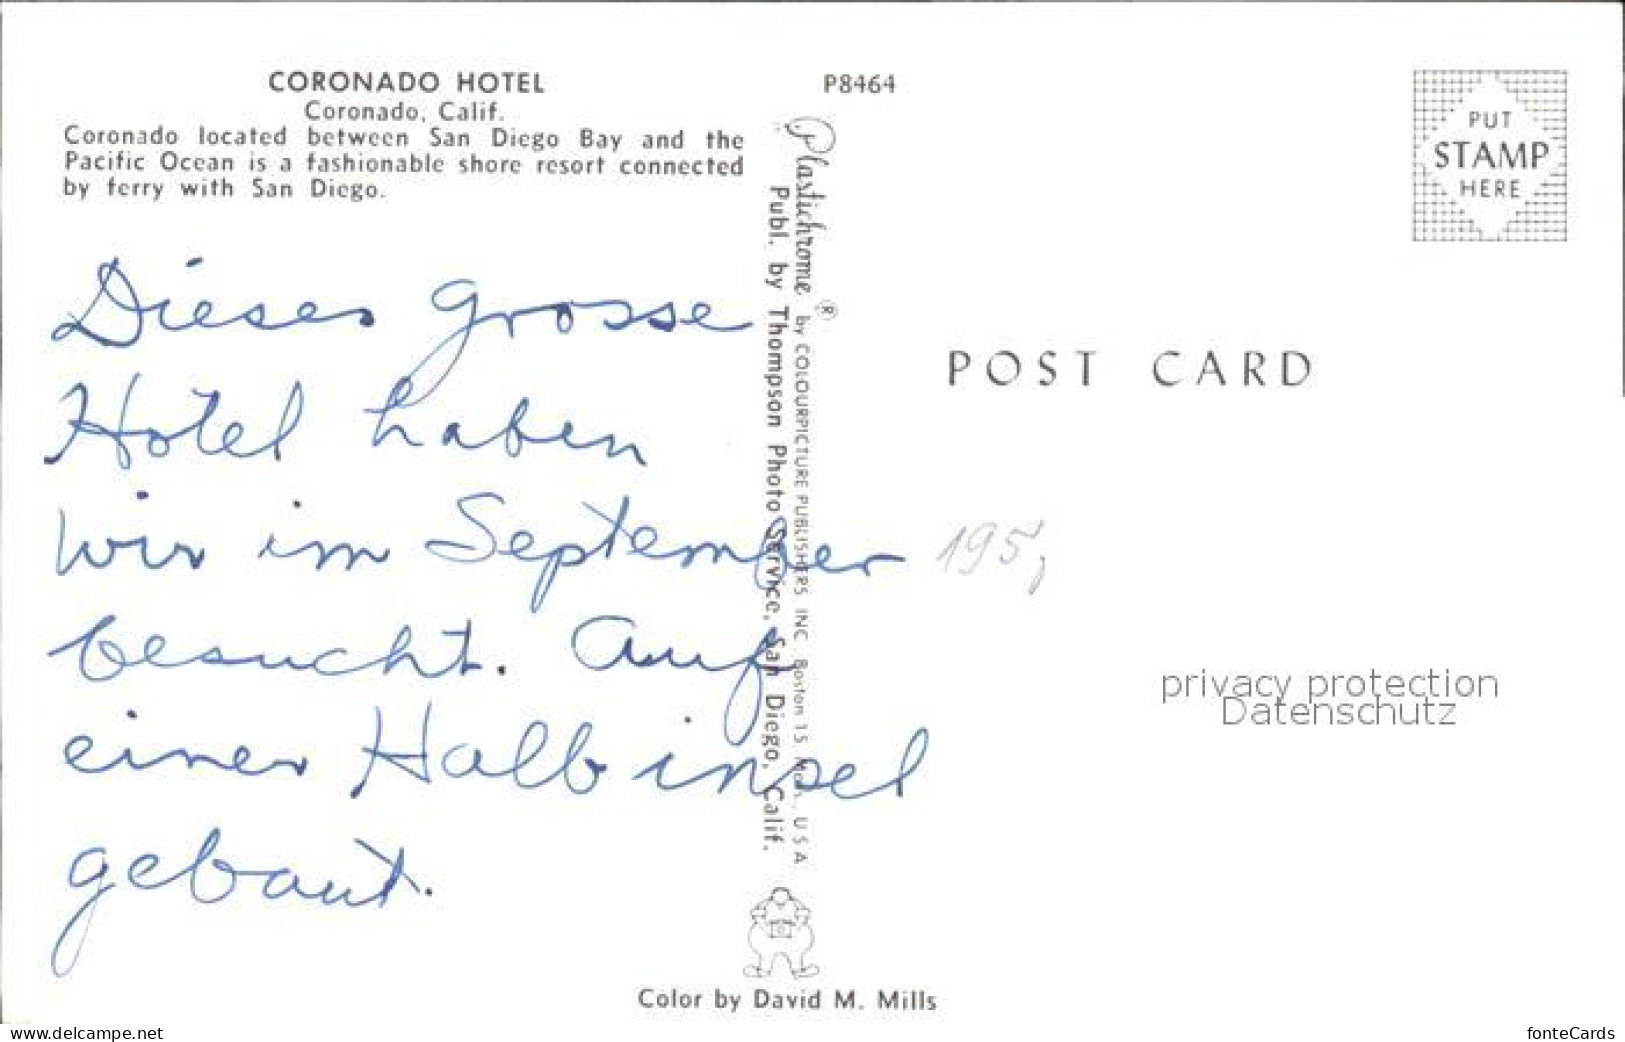 CORONADO HOTEL
Coronado, Calif.
Coronado located between San Diego Bay and the
Pacific Ocean is a fashionable shore resort connected
by ferry with San Diego.
P8464
PUT
STAMP
HERE
Dieses grosse
Hotel haben
wir im September
besucht. Auf
einer Halbinsel
gebaut.
Plastichrome ® by COLOURPICTURE PUBLISHERS INC. Boston 15, Mass., USA
Publ. by Thompson Photo Service, San Diego, Calif.
POST CARD
privacy protection
Datenschutz
Color by David M. Mills
www.delcampe.net
fonteCards